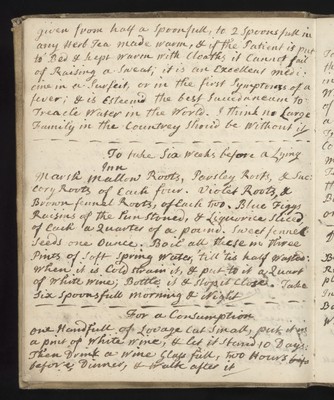 given from half a Spoonfull, to 2 Spoonsfull in
any Herb Tea made warm, & if the Patient is put
to Bed & kept warm with Cloaths it Cannot fail
of Raising a Sweat; it is an Excellent medi:
cine in a Surfeit, or in the first Symptoms of a
fever; & is Esteem'd the best Succedaneum to
Treacle Water in the World. I think no Large
Family in the Countrey Should be Without it
To take Six Weeks before a Lying
Inn
Marsh Mallow Roots, Parsley Roots, & Suc
cory Roots of Each four. Violet Roots, &
Brown fennel Roots, of Each two. Blue Figgs
Raisins of the Sun Stoned, & Liquorice Sliced
of Each a Quarter of a pound. Sweet fennel
Seeds one Ounce. Boil all these in three
Pints of Soft Spring Water, till tis half Wasted.
When it is Cold Strain it, & put to it a Quart
of White Wine; Bottle it & Stop it Close. Take
Six Spoonsfull Morning & Night
For a Consumption
one Handfull of Lovage Cut Small, put it in
a pint of White Wine, & let it Stand 10 Days.
Then Drink a Wine Glass full, two Hours
before Dinner, & Walk after it